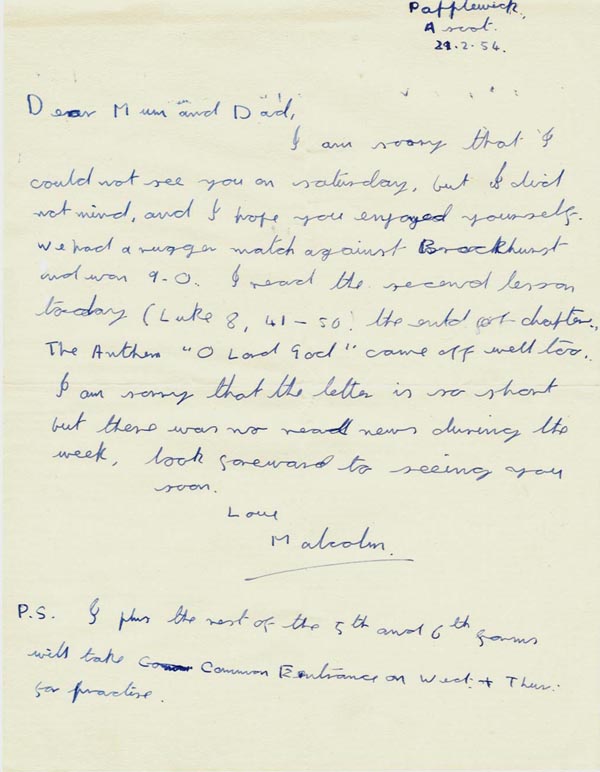 Papplewick,
Ascot.
21.2.54.
Dear Mum and Dad,
I am soory that I
could not see you on saturday, but I did
not mind, and I hope you enjoyed yourselfs.
We had a rugger match against Brockhurst
and won 9-0. I read the second lesson
today (Luke 8, 41-50! the end of chapter.
The Anthem "O Lord God" came off well too.
I am sorry that the letter is so short
but there was no real news during the
week, look foreward to seeing you
soon.
Love
Malcolm.
P.S. I plus the rest of the 5th and 6th forms
will take Common Entrance on Wed. + Thur.
for practise.